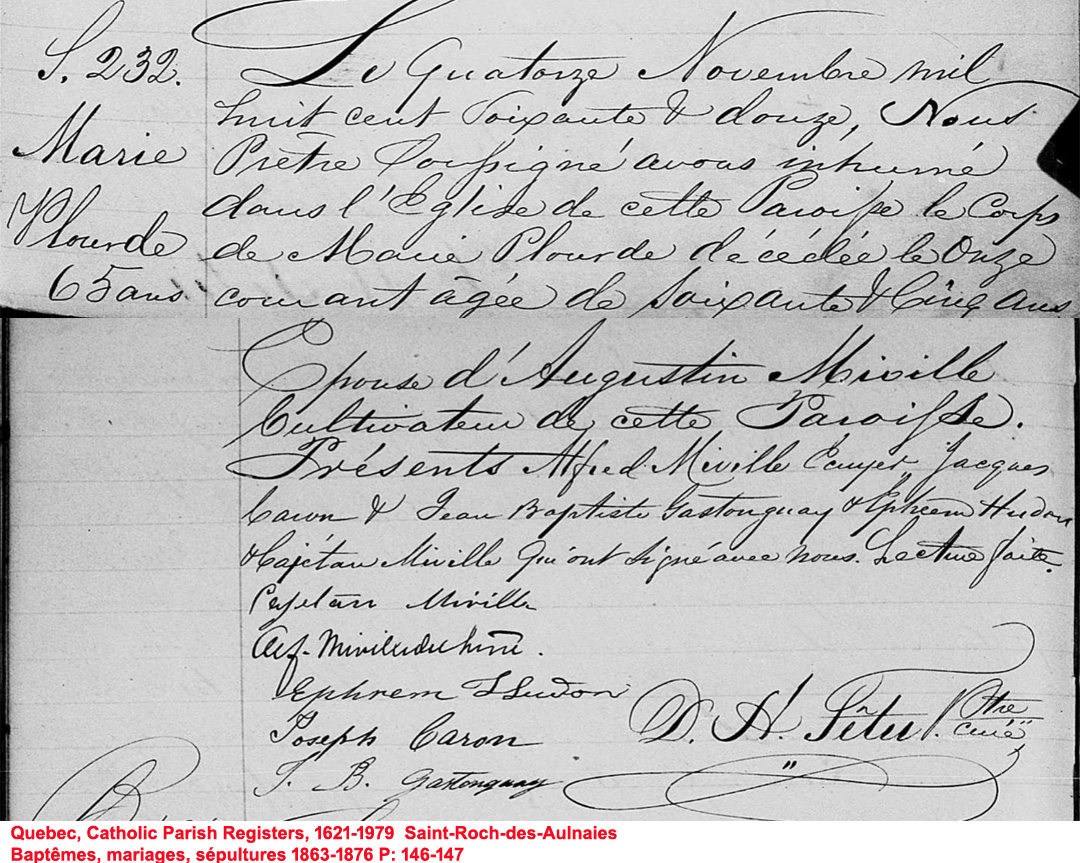 S. 232.
Marie
Plourde
65 ans
Le Quatorze Novembre mil
huit cent soixante & douze, Nous
Prêtre Soussigné avons inhumé
dans l'Eglise de cette Paroisse le Corps
de Marie Plourde décédée le Onze
courant âgée de soixante & Cinq ans
Epouse d'Augustin Miville
Cultivateur de cette Paroisse.
Présents Alfred Miville Ecuyer, Jacques
Caron & Jean Baptiste Gastonguay & Ephrem Hudon
& Cajétan Miville qu'ont signé avec nous. Lecture faite.
Cajetan Miville
Alf. Miville duchène.
Ephrem Hudon
Joseph Caron
J. B. Gastonguay
D. H. Têtu Ptre
curé
Quebec, Catholic Parish Registers, 1621-1979 Saint-Roch-des-Aulnaies
Baptêmes, mariages, sépultures 1863-1876 P: 146-147